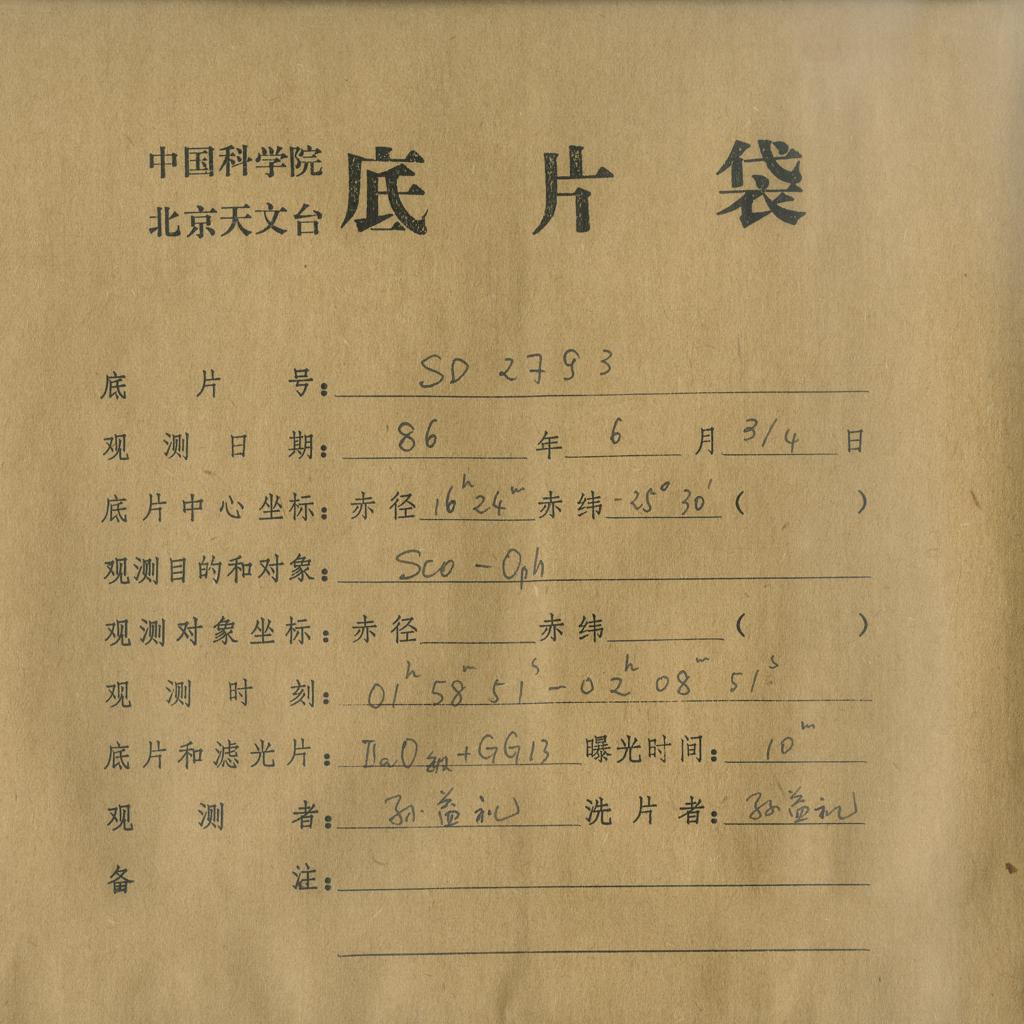 中国科学院
北京天文台
底片袋
底片号: SD 2793
观测日期: 86 年 6 月 3/4 日
底片中心坐标: 赤径 16h 24m 赤纬 -25° 30' ( )
观测目的和对象: Sco - Oph
观测对象坐标: 赤径 赤纬 ( )
观测时刻: 01h 58m 51s - 02h 08m 51s
底片和滤光片: IIaO敏+GG13 曝光时间: 10m
观测者: 孙益礼 洗片者: 孙益礼
备注: